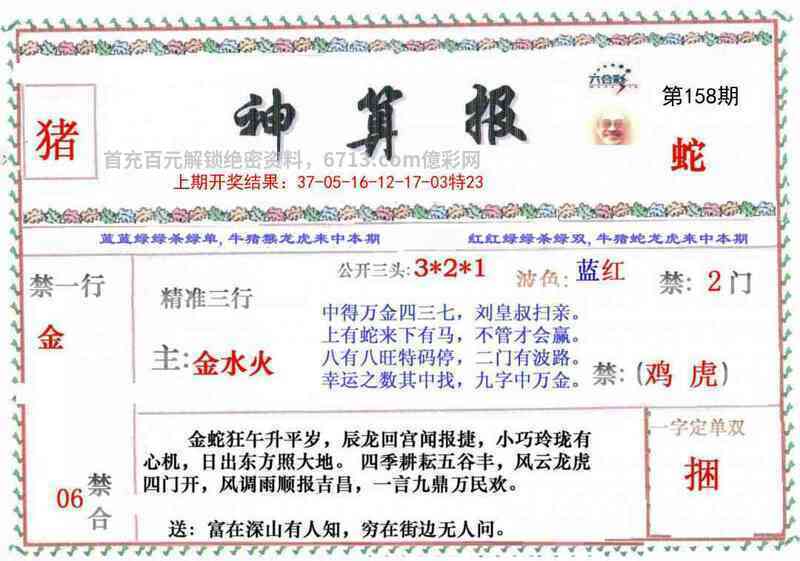 神算报
六合彩
第158期
猪
蛇
首充百元解锁绝密资料，6713.com億彩网
上期开奖结果：37-05-16-12-17-03特23
蓝蓝绿绿杀绿单,牛猪猴龙虎来中本期
红红绿绿杀绿双,牛猪蛇龙虎来中本期
禁一行
金
精准三行
主:金水火
公开三头:3*2*1
波色:蓝红
禁:2门
中得万金四三七，刘皇叔扫亲。
上有蛇来下有马，不管才会赢。
八有八旺特码停，二门有波路。
幸运之数其中找，九字中万金。
禁:(鸡 虎)
06
禁合
金蛇狂午升平岁，辰龙回宫闻报捷，小巧玲珑有
心机，日出东方照大地。 四季耕耘五谷丰，风云龙虎
四门开，风调雨顺报吉昌，一言九鼎万民欢。
送：富在深山有人知，穷在街边无人问。
一字定单双
捆